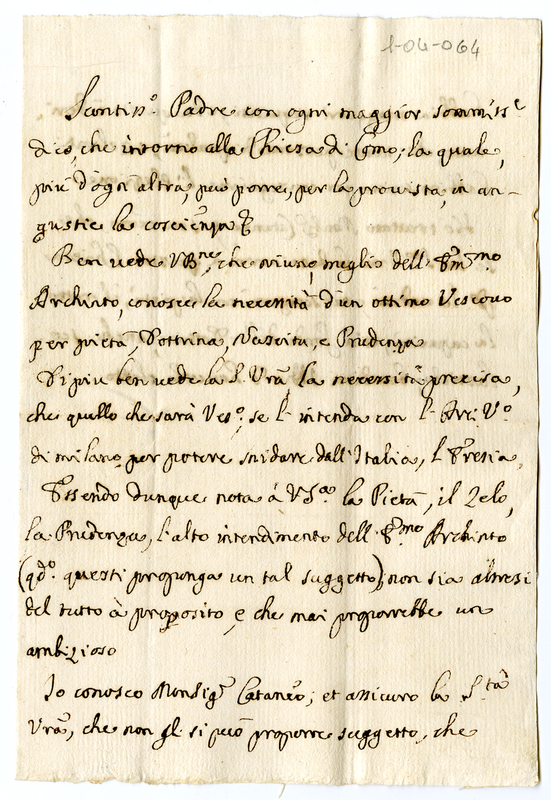 1-04-064
Padre con ogni maggior sommiss.e
dico, che intorno alla Chiesa di Como; la quale,
più d'ogn altra, può porre, per la provista, in an-
gustie la coscienza
Ben vede VBne, che niuno meglio dell' Emmo
Archinto, conosce la necessità d'un ottimo Vescovo
per pietà, Dottrina, Nascita, e Prudenza
Di più ben vede la S. Vra la necessità precisa,
che quello che sarà Veso, se l'intenda con l'Arc. Vo
di milano, per potere snidare dall'Italia, l'Eresia,
Essendo dunque nota à VSa la Pietà, il Zelo,
la Prudenza, l'alto intendimento dell' Emo Archinto
(qdo questi proponga un tal suggetto) non sia altresi
del tutto à proposito, e che mai proporrebbe un
ambizioso
Io conosco Monsigr Cataneo; et assicuro la S.tà
Vra, che non gli si può proporre suggetto, che